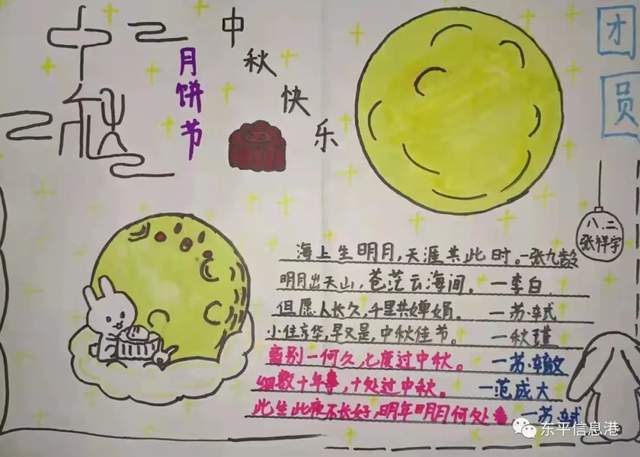 中秋
月饼节
中秋快乐
团圆
八.二
张祥宇
海上生明月，天涯共此时。—张九龄
明月出天山，苍茫云海间。—李白
但愿人长久，千里共婵娟。—苏轼
小住京华，早又是，中秋佳节。—秋瑾
离别一何久，七度过中秋。—苏辙
细数十年事，十处过中秋。—范成大
此生此夜不长好，明年明月何处看—苏轼
东平信息港